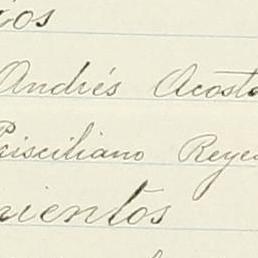 ios
Andrés Acosta
Prisciliano Reyes
mientos